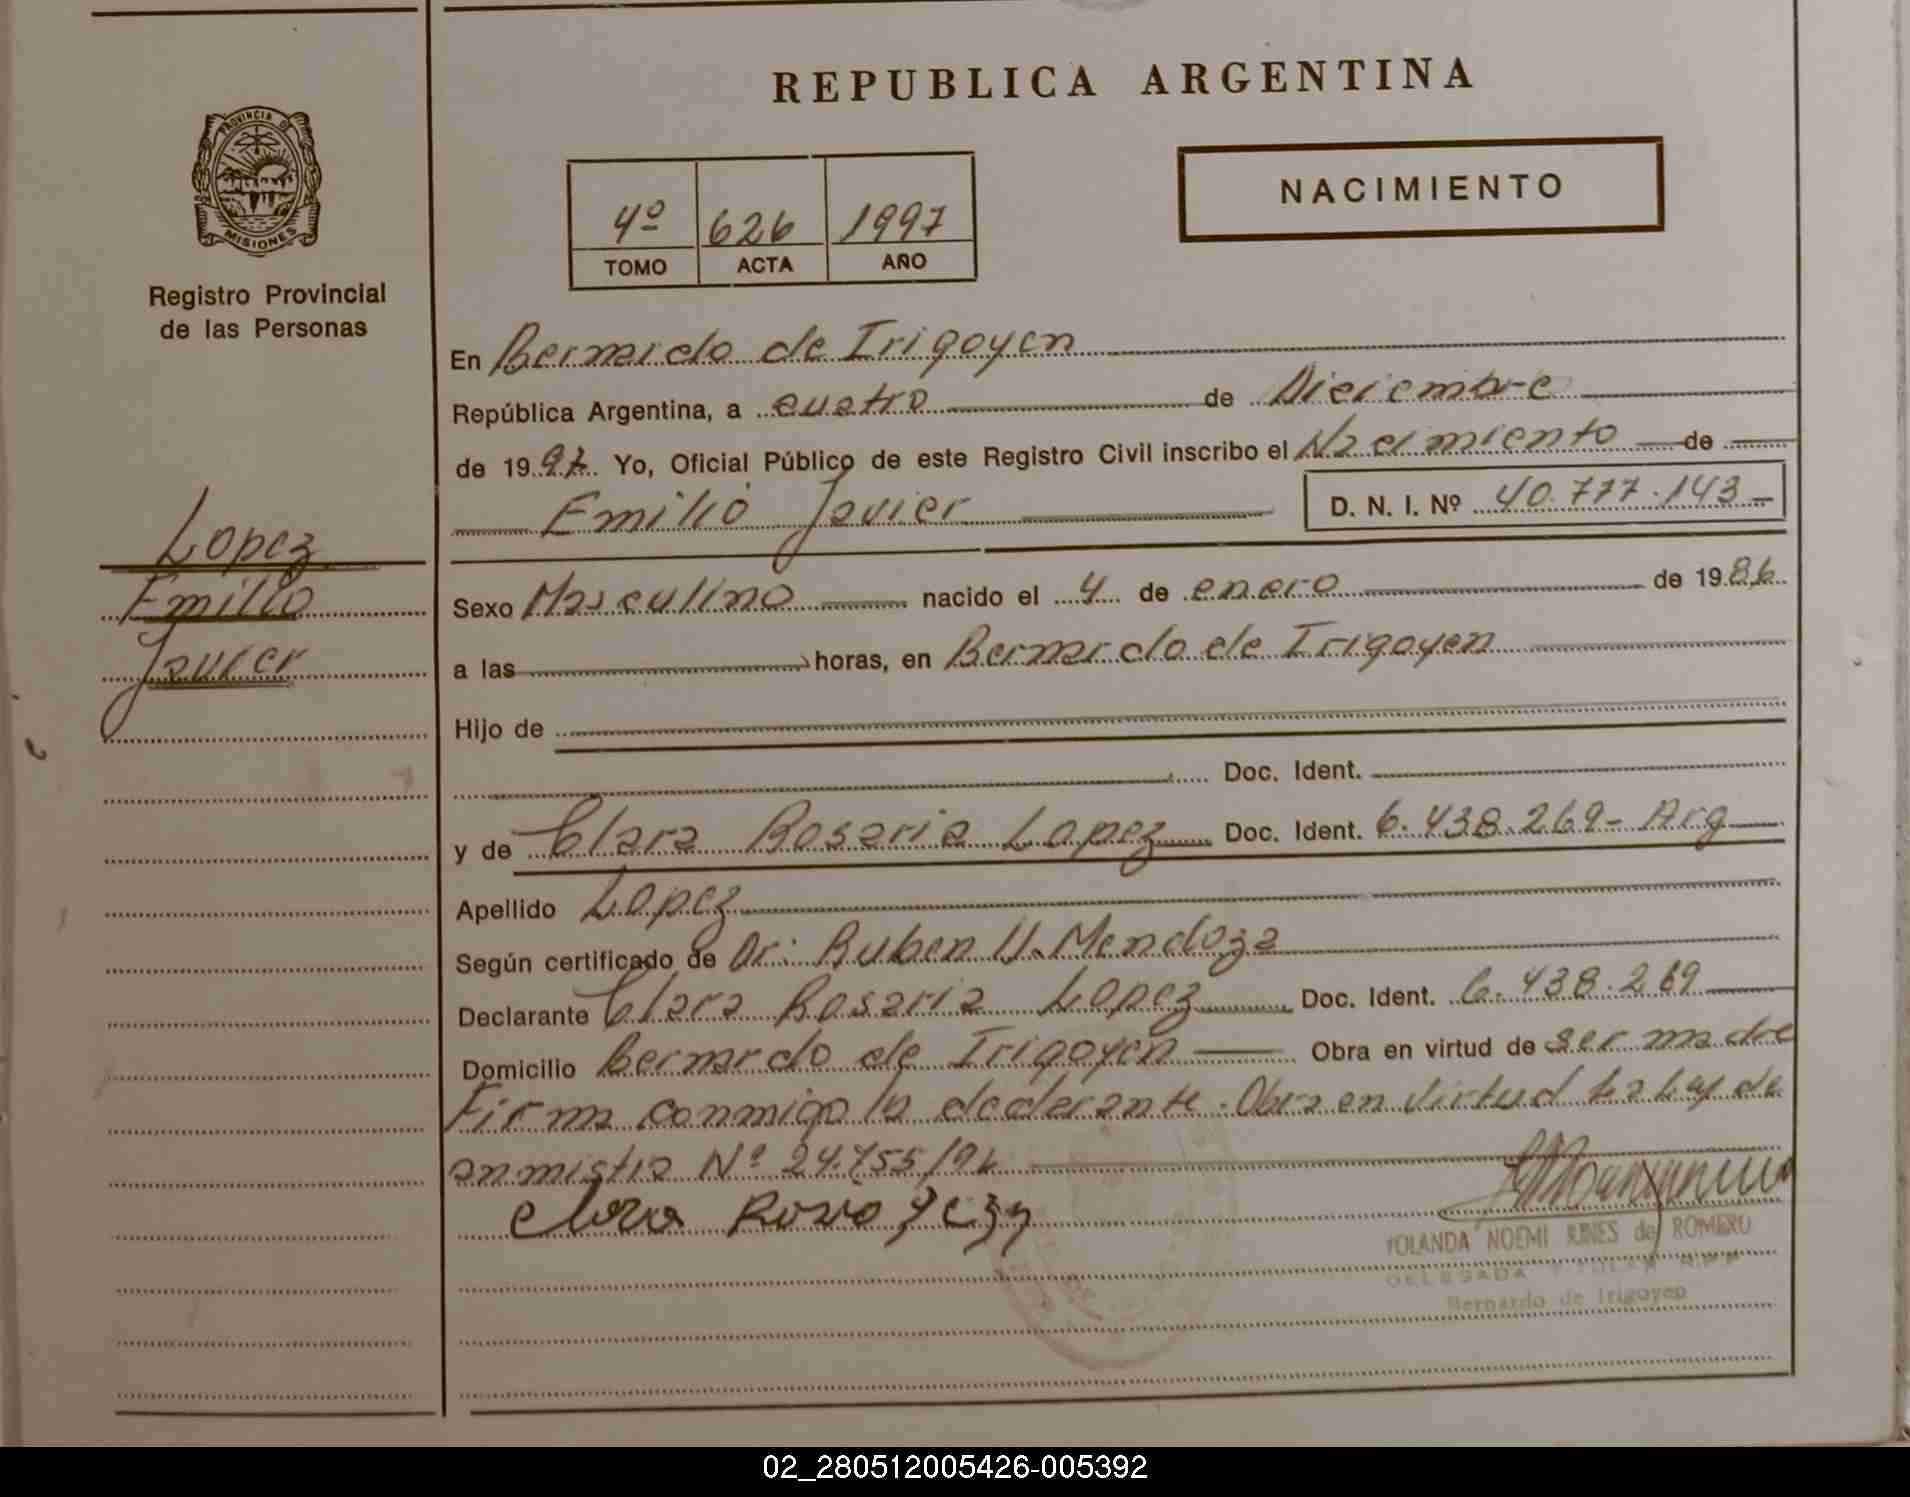 REPUBLICA ARGENTINA
PROVINCIA DE
MISIONES
Registro Provincial
de las Personas
NACIMIENTO
4º 626 1997
TOMO ACTA AÑO
En Bernardo de Irigoyen
República Argentina, a cuatro de Diciembre
de 1997. Yo, Oficial Público de este Registro Civil inscribo el Nacimiento de
Emilio Javier D. N. I. Nº 40.777.143
Lopez
Emilio
Javier
Sexo Masculino nacido el 4 de enero de 1986
a las horas, en Bernardo de Irigoyen
Hijo de
Doc. Ident.
y de Clara Rosaria Lopez Doc. Ident. 6.438.269- Arg
Apellido Lopez
Según certificado de Dr: Ruben U. Mendoza
Declarante Clara Rosaria Lopez Doc. Ident. 6.438.269
Domicilio Bernardo de Irigoyen Obra en virtud de ser madre
Firma conmigo la declarante. Obra en virtud Ley de
anmistia Nº 24.755/96
Clara
YOLANDA NOEMI de ROMERO
DELEGADA TITULAR R.P.P
Bernardo de Irigoyen
02_280512005426-005392